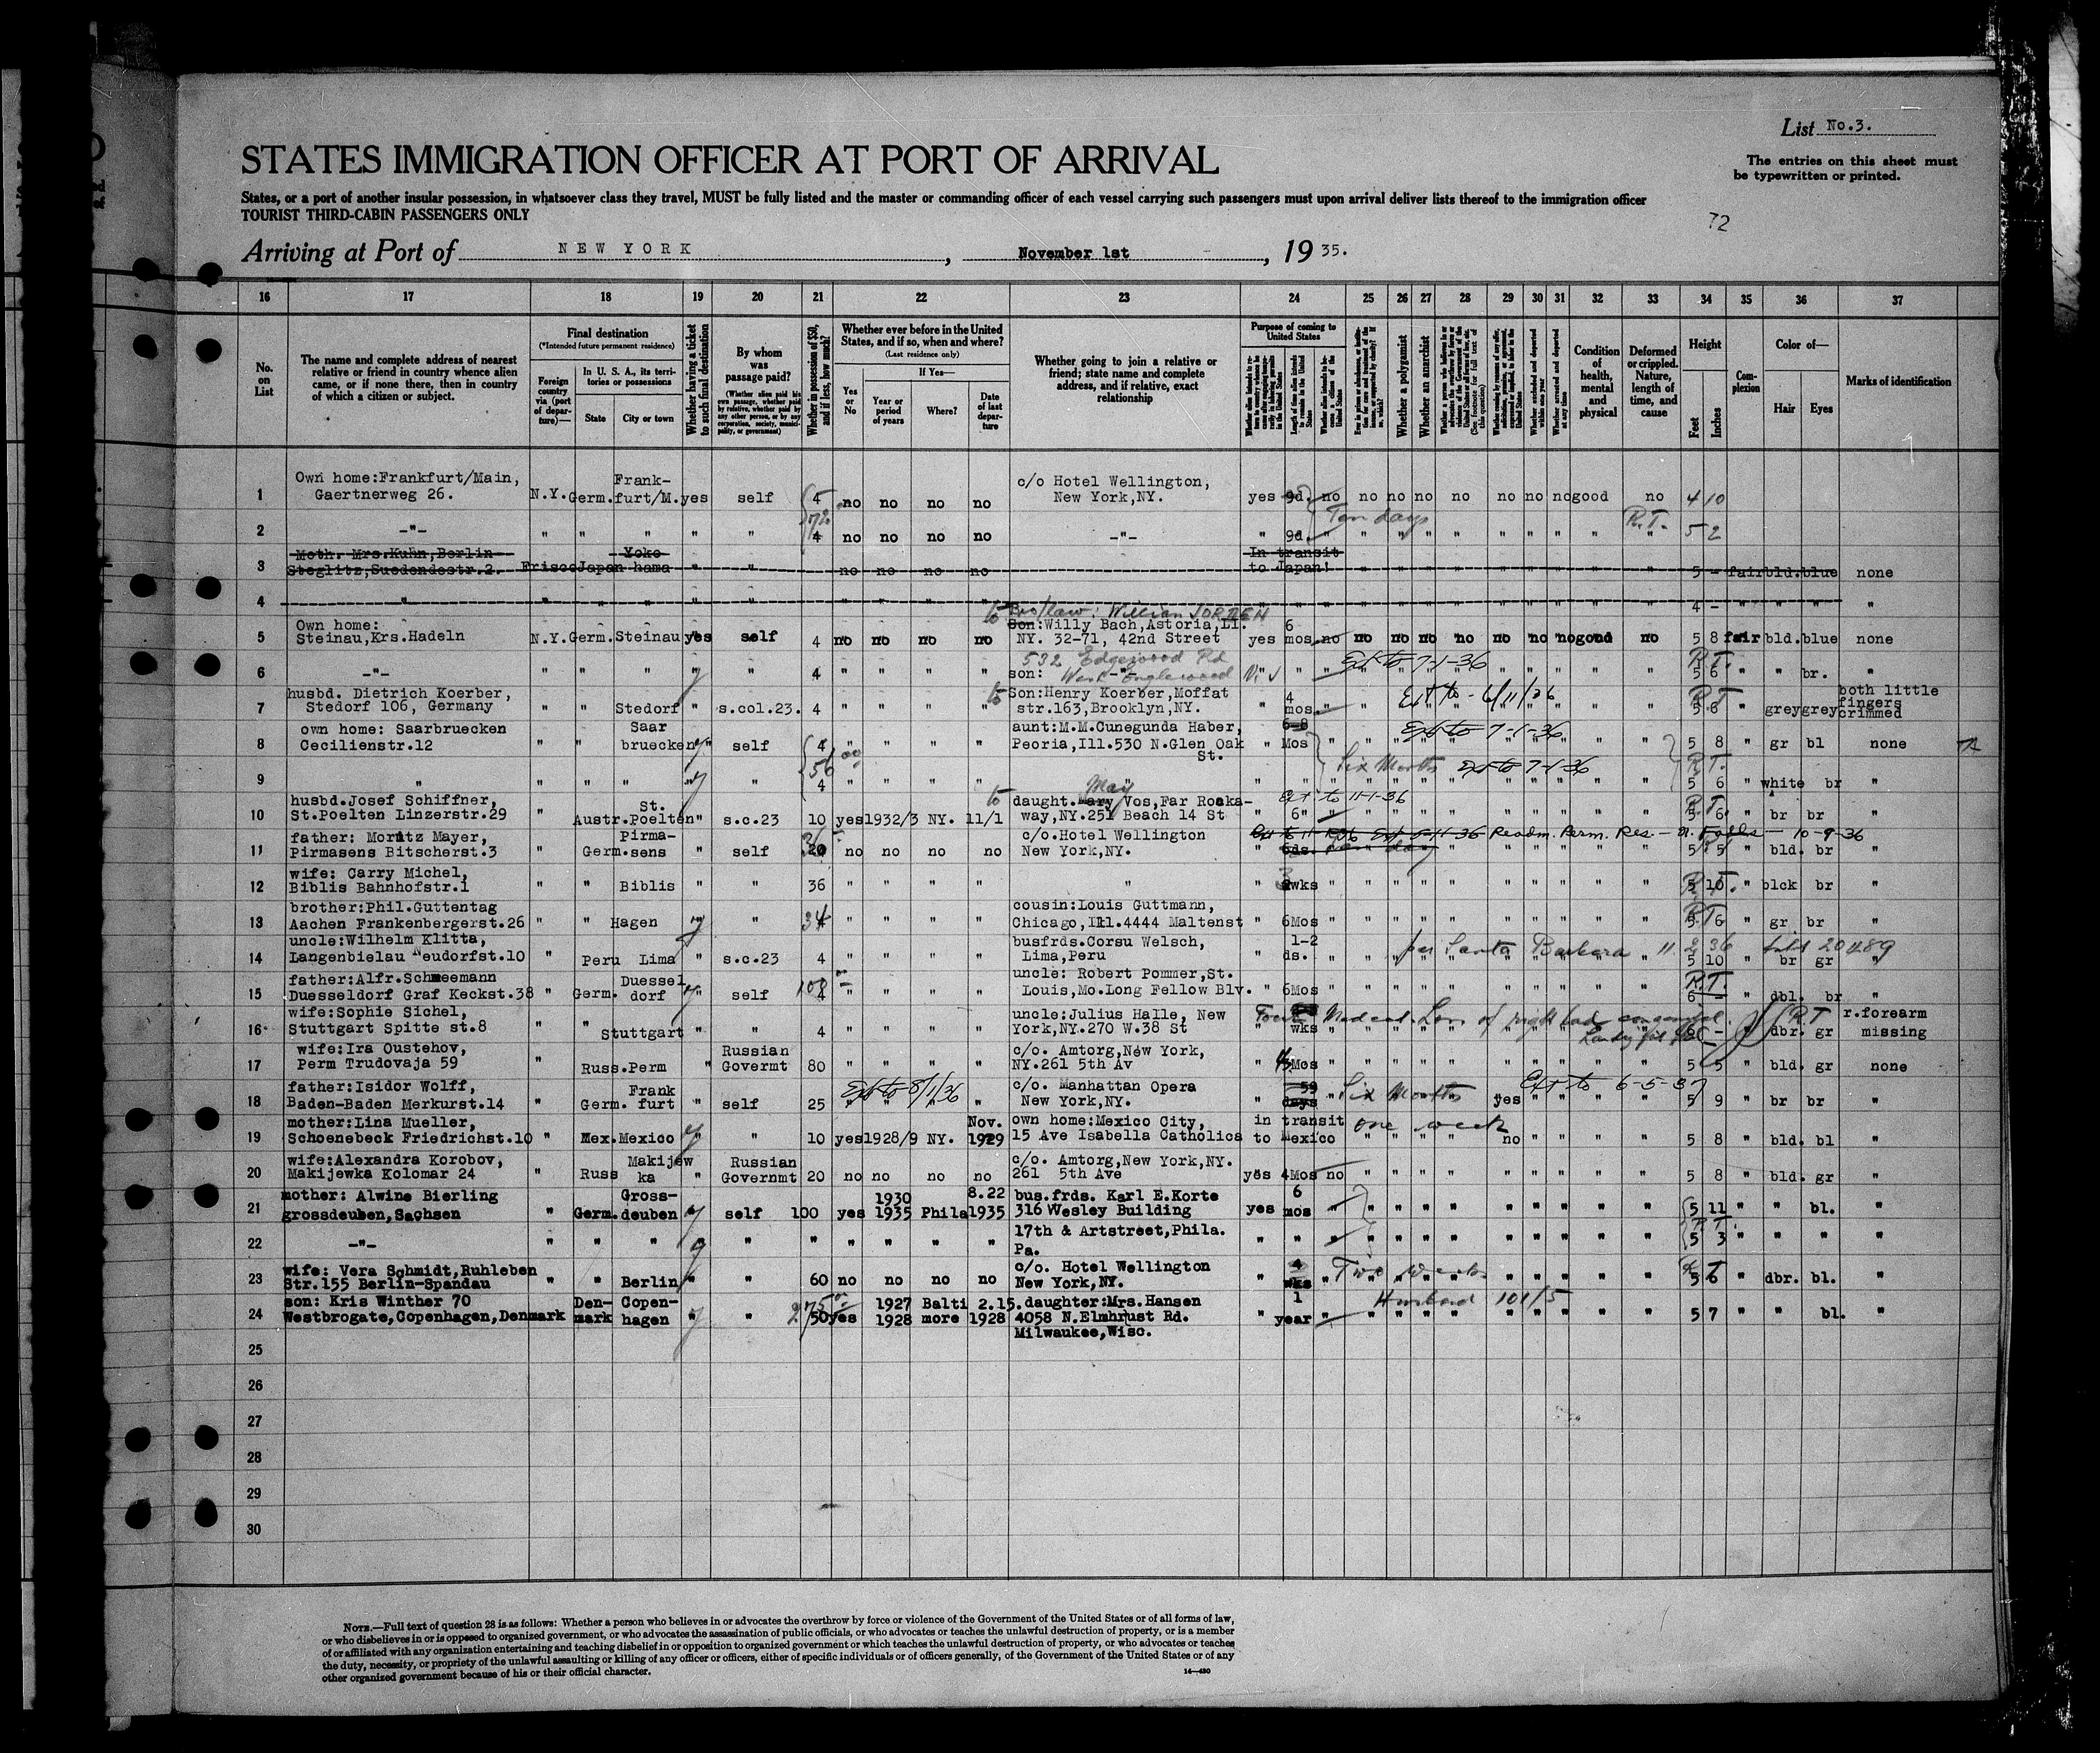 List No.3.
STATES IMMIGRATION OFFICER AT PORT OF ARRIVAL
The entries on this sheet must
be typewritten or printed.
States, or a port of another insular possession, in whatsoever class they travel, MUST be fully listed and the master or commanding officer of each vessel carrying such passengers must upon arrival deliver lists thereof to the immigration officer
TOURIST THIRD-CABIN PASSENGERS ONLY
72
Arriving at Port of NEW YORK, November 1st, 1935.
16 17 18 19 20 21 22 23 24 25 26 27 28 29 30 31 32 33 34 35 36 37
No. on List
The name and complete address of nearest relative or friend in country whence alien came, or if none there, then in country of which a citizen or subject.
Final destination
(*Intended future permanent residence)
Foreign country via (port of departure)—
In U. S. A., its territories or possessions
State
City or town
Whether having a ticket to such final destination
By whom was passage paid?
(Whether alien paid his own passage, whether paid by relative, whether paid by any other person, or by any corporation, society, municipality, or government)
Whether in possession of $50, and if less, how much?
Whether ever before in the United States, and if so, when and where?
(Last residence only)
Yes or No
If Yes—
Year or period of years
Where?
Date of last departure
Whether going to join a relative or friend; state name and complete address, and if relative, exact relationship
Purpose of coming to United States
Whether a polygamist
Whether an anarchist
Condition of health, mental and physical
Deformed or crippled. Nature, length of time, and cause
Height
Feet
Inches
Complexion
Color of—
Hair
Eyes
Marks of identification
1 Own home:Frankfurt/Main, Gaertnerweg 26. N.Y. Germ. Frank-furt/M. yes self 5 no no no no c/o Hotel Wellington, New York,NY. yes 9d. no no no no no no no no good no 4 10
2 -"- " " " " " 4 no no no no -"- " 9d. Ten days R.T. 5 2
3 Moth. Mrs.Kuhn,Berlin Steglitz,Suedendestr.2. Frisco Japan Yoko-hama " " no no no no In transit to Japan! 5 - fair bld. blue none
4 " " " " " " " " " " 4 - " " " "
Bro/law: William JORDEN
5 Own home: Steinau,Krs.Hadeln N.Y. Germ. Steinau yes self 4 no no no no Son:Willy Bach,Astoria,LI. NY. 32-71, 42nd Street yes 6 mos. no no no no no no no no good no 5 8 fair bld. blue none
532 Edgewood Rd
West Englewood
6 -"- " " " " 4 " " " " son: " " Ext to 7-1-36 R.T. 5 6 " " br. "
7 husbd. Dietrich Koerber, Stedorf 106, Germany " " Stedorf " s.col.23. 4 " " " " Son:Henry Koerber,Moffat str.163,Brooklyn,NY. " 4 mos. Ext to - 6/11/36 R.T 5 6 " grey grey both little fingers crimmed
8 own home: Saarbruecken Cecilienstr.12 " " Saar bruecken " self 4 " " " " aunt:M.M.Cunegunda Haber, Peoria,Ill.530 N.Glen Oak St. " 6-8 Mos Ext to 7-1-36 5 8 " gr bl none
9 " " " " " " 56 4 " " " " " " Six Months Ext to 7-1-36 R.T. 5 6 " white br "
10 husbd.Josef Schiffner, St.Poelten Linzerstr.29 " Austr. St. Poelten " s.c.23 10 yes 1932/3 NY. 11/1 daught.Mary Vos,Far Rocka-way,NY.251 Beach 14 St " 6" Ext to 11-1-36 R.T. 5 6 " br br "
May
Readm. Perm. Res. - N. Falls - 10-9-36
11 father: Moritz Mayer, Pirmasens Bitscherst.3 Germ. Pirma-sens " self 20 no no no no c/o.Hotel Wellington New York,NY. " 6ds. 5 5 " bld. br "
12 wife: Carry Michel, Biblis Bahnhofstr.1 " " Biblis " " 36 " " " " " " wks R.T. 5 10 " blck br "
13 brother:Phil.Guttentag Aachen Frankenbergerst.26 " " Hagen " " 34 " " " " cousin:Louis Guttmann, Chicago,Ill.4444 Maltenst " 6Mos R.T 5 6 " gr br "
14 uncle:Wilhelm Klitta, Langenbielau Neudorfst.10 " Peru Lima " s.c.23 4 " " " " busfrds.Corsu Welsch, Lima,Peru " 1-2 ds. per Santa Barbara 11 2 36 5 10 " br gr "
15 father:Alfr.Schmeemann Duesseldorf Graf Keckst.38 " Germ. Duessel dorf " self 4 " " " " uncle: Robert Pommer,St. Louis,Mo.Long Fellow Blv. " 6Mos R.T. 6 - " dbl. br "
16 wife:Sophie Sichel, Stuttgart Spitte st.8 " " Stuttgart " " 4 " " " " uncle:Julius Halle, New York,NY.270 W.38 St wks R.T 6 - " dbr. gr r.forearm missing
17 wife:Ira Oustehov, Perm Trudovaja 59 " Russ. Perm " Russian Governmt 80 " " " " c/o. Amtorg,New York, NY.261 5th Av " Mos 5 5 " bld. gr none
18 father:Isidor Wolff, Baden-Baden Merkurst.14 " Germ. Frank furt " self 25 " " " " c/o. Manhattan Opera New York,NY. " 59 days Ext to 8/1/36 Six Months yes Ext to 6-5-37 5 9 " br br "
19 mother:Lina Mueller, Schoenebeck Friedrichst.10 " Mex. Mexico " " 10 yes 1928/9 NY. Nov. 1929 own home:Mexico City, 15 Ave Isabella Catholica in transit to Mexico one week no 5 8 " bld. bl "
20 wife:Alexandra Korobov, Makijewka Kolomar 24 " Russ Makijew ka " Russian Governmt 20 no no no no c/o. Amtorg,New York,NY. 261 5th Ave yes 4Mos no 5 8 " bld. gr "
21 mother: Alwine Bierling grossdeuben,Sachsen " Germ. Gross-deuben " self 100 yes 1930 1935 Phila 8.22 1935 bus.frds. Karl E.Korte 316 Wesley Building yes 6 mos 5 11 " " bl. "
22 -"- " " " " " " " " " " 17th & Artstreet,Phila. Pa. " " 5 3 " " " "
23 wife: Vera Schmidt,Ruhleben Str.155 Berlin-Spandau " " Berlin " " 60 no no no no c/o. Hotel Wellington New York,NY. " 4 wks Two weeks 5 6 " dbr. bl. "
24 son: Kris Winther 70 Westbrogate,Copenhagen,Denmark Den-mark Copen-hagen " " 50 yes 1927 1928 Balti more 2.15. 1928 daughter:Mrs.Hansen 4058 N.Elmhrust Rd. Milwaukee,Wisc. " 1 year Husband 101/5 5 7 " " bl. "
25
26
27
28
29
30
NOTE.—Full text of question 28 is as follows: Whether a person who believes in or advocates the overthrow by force or violence of the Government of the United States or of all forms of law,
or who disbelieves in or is opposed to organized government, or who advocates the assassination of public officials, or who advocates or teaches the unlawful destruction of property, or is a member
of or affiliated with any organization entertaining and teaching disbelief in or opposition to organized government or which teaches the unlawful destruction of property, or who advocates or teaches
the duty, necessity, or propriety of the unlawful assaulting or killing of any officer or officers, either of specific individuals or of officers generally, of the Government of the United States or of any
other organized government because of his or their official character.
14—430